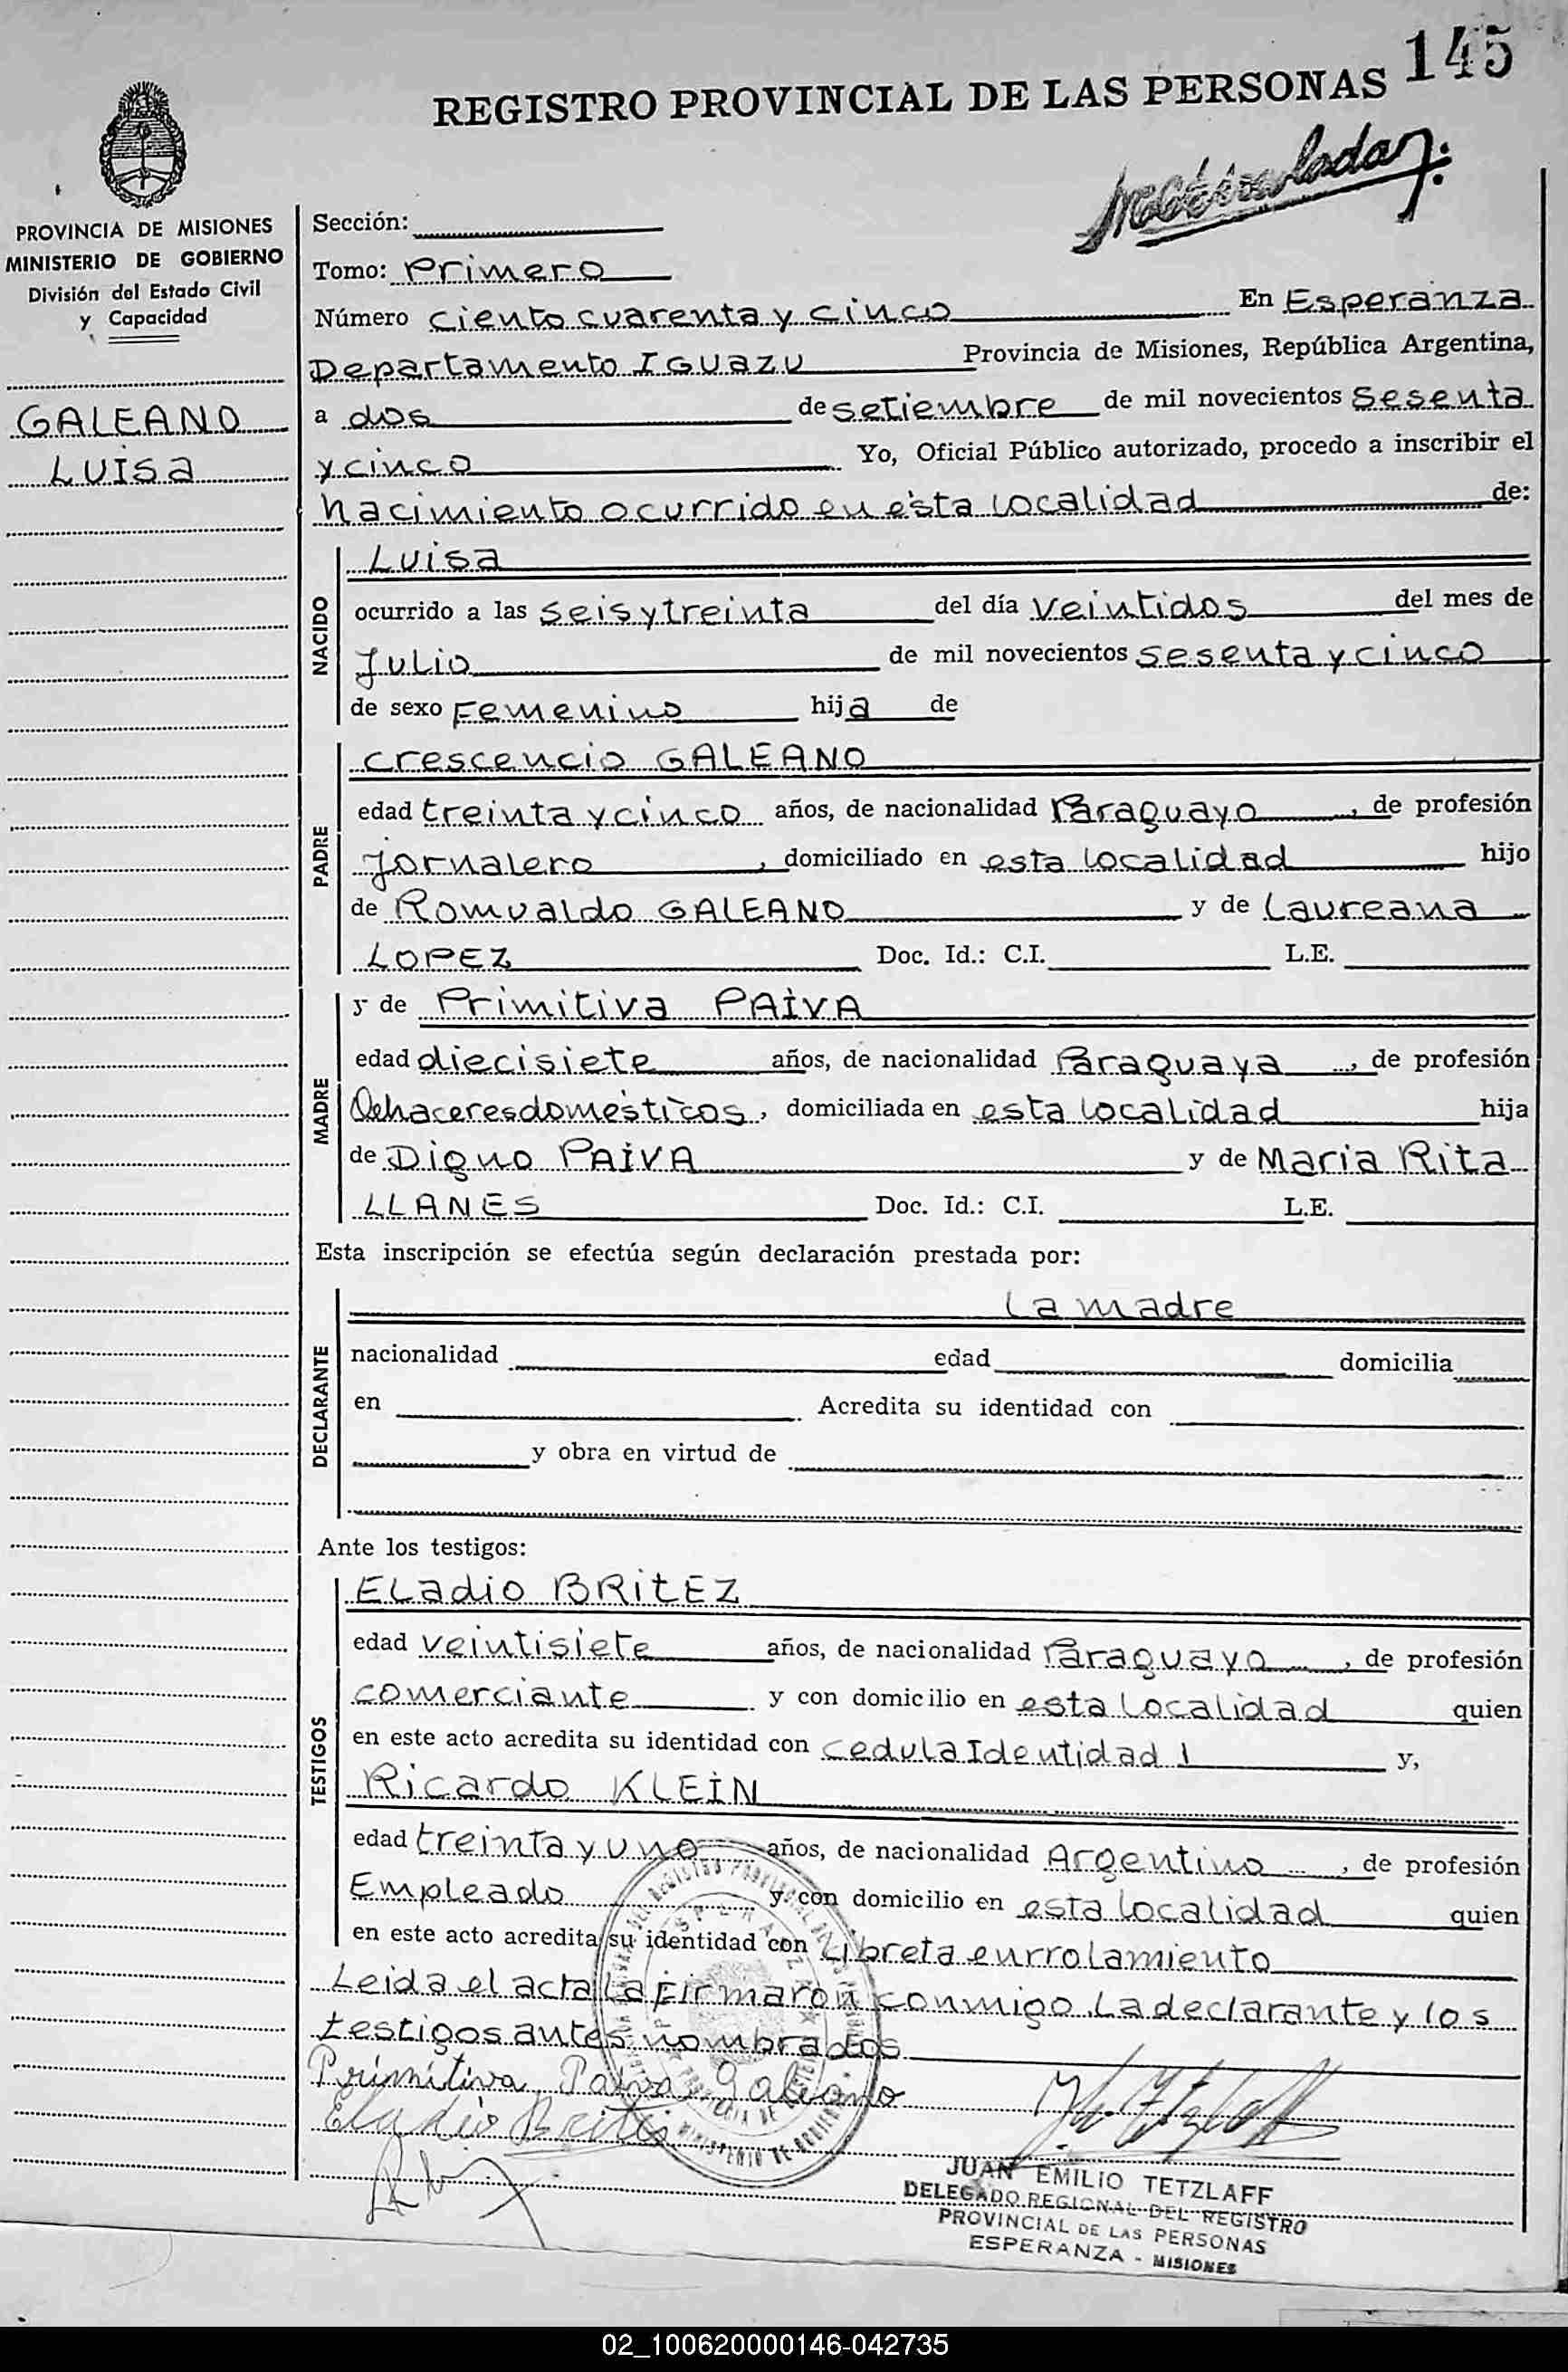 145
REGISTRO PROVINCIAL DE LAS PERSONAS
PROVINCIA DE MISIONES
MINISTERIO DE GOBIERNO
División del Estado Civil
y Capacidad
GALEANO
LUISA
Sección:
Tomo: Primero
Número ciento cuarenta y cinco En Esperanza
Departamento IGUAZU Provincia de Misiones, República Argentina,
a dos de setiembre de mil novecientos Sesenta
y cinco Yo, Oficial Público autorizado, procedo a inscribir el
nacimiento ocurrido en esta localidad de:
NACIDO
Luisa
ocurrido a las seis y treinta del día veintidos del mes de
Julio de mil novecientos sesenta y cinco
de sexo Femenino hija de
PADRE
crescencio GALEANO
edad treinta y cinco años, de nacionalidad Paraguayo, de profesión
jornalero, domiciliado en esta localidad hijo
de Romualdo GALEANO y de Laureana
LOPEZ Doc. Id.: C.I. L.E.
MADRE
y de Primitiva PAIVA
edad diecisiete años, de nacionalidad Paraguaya, de profesión
Qehaceres domésticos, domiciliada en esta localidad hija
de Digno PAIVA y de Maria Rita
LLANES Doc. Id.: C.I. L.E.
Esta inscripción se efectúa según declaración prestada por:
DECLARANTE
La madre
nacionalidad edad domicilia
en Acredita su identidad con
y obra en virtud de
Ante los testigos:
TESTIGOS
Eladio BRITEZ
edad veintisiete años, de nacionalidad Paraguayo, de profesión
comerciante y con domicilio en esta localidad quien
en este acto acredita su identidad con cedula Identidad y,
Ricardo KLEIN
edad treinta y uno años, de nacionalidad Argentino, de profesión
Empleado y con domicilio en esta localidad quien
en este acto acredita su identidad con Libreta enrrolamiento
Leida el acta la firmaron conmigo La declarante y los
testigos antes nombrados
Primitiva Paiva Galeano
Eladio Britez
JUAN EMILIO TETZLAFF
DELEGADO REGIONAL DEL REGISTRO
PROVINCIAL DE LAS PERSONAS
ESPERANZA - MISIONES
02_100620000146-042735